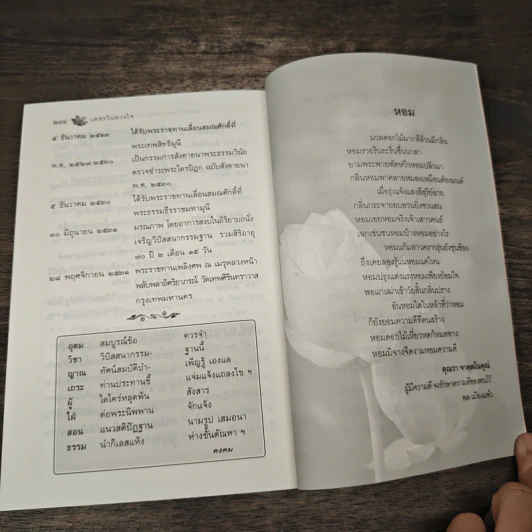 ๒๔๔ เพชรในดวงใจ
๕ ธันวาคม ๒๕๒๓ ได้รับพระราชทานเลื่อนสมณศักดิ์ที่
พระเทพสิทธิมุนี
พ.ศ. ๒๕๒๘-๒๕๓๐ เป็นกรรมการสังคายนาพระธรรมวินัย
ตรวจชำระพระไตรปิฎก ฉบับสังคายนา
พ.ศ. ๒๕๓๐
๕ ธันวาคม ๒๕๓๐ ได้รับพระราชทานเลื่อนสมณศักดิ์ที่
พระธรรมธีรราชมหามุนี
๓๐ มิถุนายน ๒๕๓๑ มรณภาพ โดยอาการสงบในอิริยาบถนั่ง
เจริญวิปัสสนากรรมฐาน รวมสิริอายุ
๗๐ ปี ๒ เดือน ๑๕ วัน
๒๘ พฤศจิกายน ๒๕๓๑ พระราชทานเพลิงศพ ณ เมรุหลวงหน้า
พลับพลาอิศริยาภรณ์ วัดเทพศิรินทราวาส
กรุงเทพมหานคร
อุดม สมบูรณ์ข้อ ควรจำ
วิชา วิปัสสนากรรม- ฐานนี้
ญาณ ทัศน์สมบัติบำ- เพ็ญรู้ เองแล
เถระ ท่านประทานชี้ แจ่มแจ้งแถลงไข ฯ
ผู้ ใดใคร่หลุดพ้น สังสาร
ใฝ่ ต่อพระนิพพาน จักแจ้ง
สอน แนวสติปัฏฐาน นามรูป เสมอนา
ธรรม นำกิเลสแห้ง ห่างชั้นตัณหา ฯ
คงคม
หอม
มวลดอกไม้มากสีล้วนมีกลิ่น
หอมรวยรินระรื่นชื่นนาสา
ยามพระพายพัดหวิวหอมปลิวมา
กลิ่นหอมพาคลายหมองเหมือนต้องมนต์
เมื่อรุ่งแจ้งแสงสีสุรีย์ฉาย
กลิ่นกระจายขจายอวลยิ่งชวนสน
หอมเอยหอมจริงเจ้าเสาวคนธ์
เฉกเช่นชนหอมบ้างหอมอย่างไร
หอมแก้มสาวคราวรุ่นยังขุ่นข้อง
ถึงเคยลองรู้แน่หอมแค่ไหน
หอมปรุงแต่งแรงหอมเพียงย้อมใจ
พอแก่เฒ่าเข้าวัยสิ้นกลิ่นปราง
อันหอมใดในหล้าที่ว่าหอม
ก็ยังยอมความดีที่คนสร้าง
หอมดอกไม้เหี่ยวหดก็หมดทาง
หอมมิจางจึ่งดีงามหอมความดี